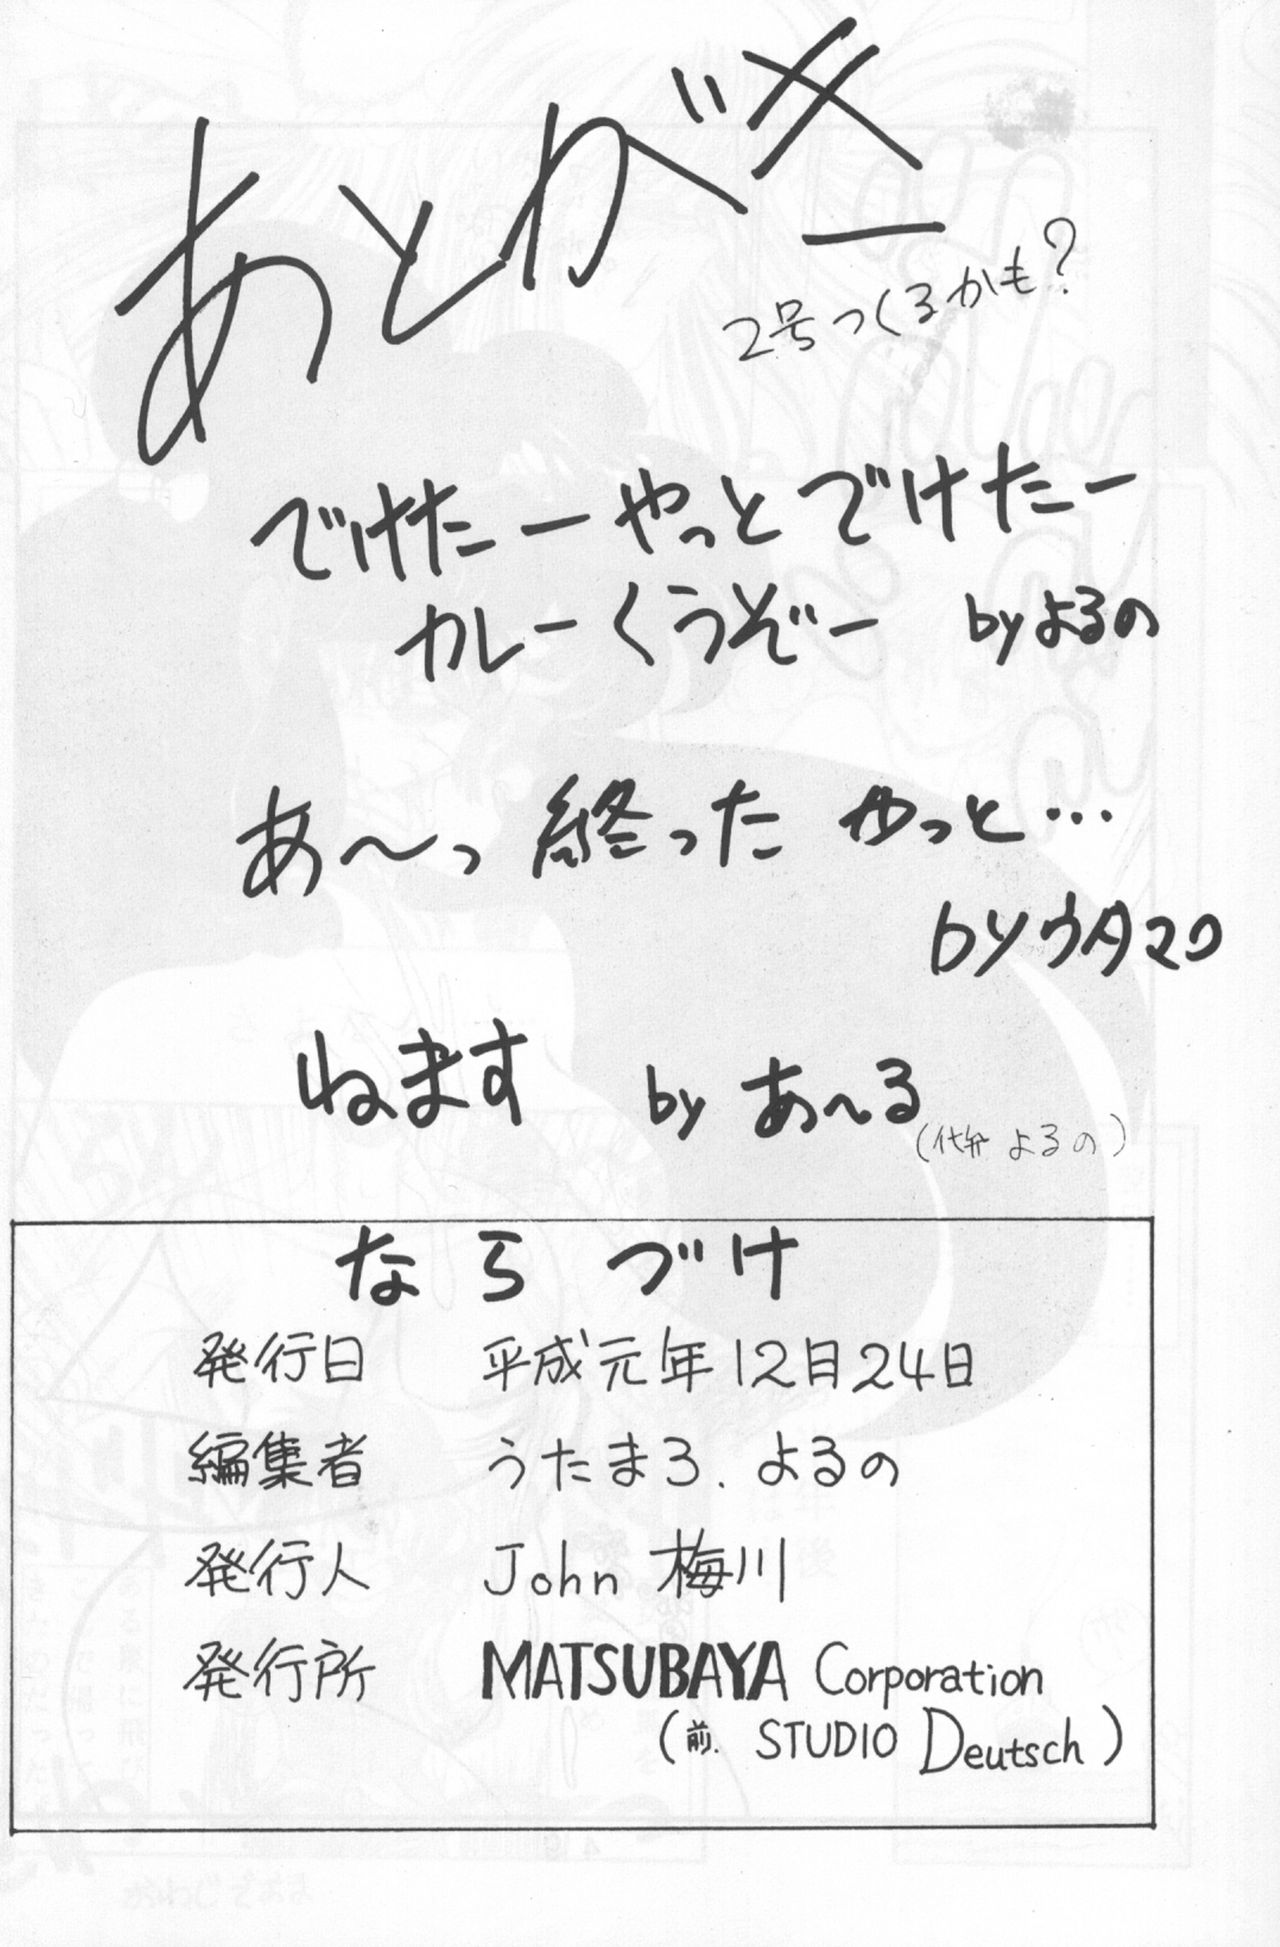 あとがき
2号つくるかも?
でけたーやっとでけたー
カレーくうぞー by よるの
あ〜っ 終った やっと…
by ウタマロ
ねます by あ〜る
(代弁 よるの)
ならづけ
発行日 平成元年12月24日
編集者 うたまろ. よるの
発行人 John 梅川
発行所 MATSUBAYA Corporation
(前. STUDIO Deutsch)